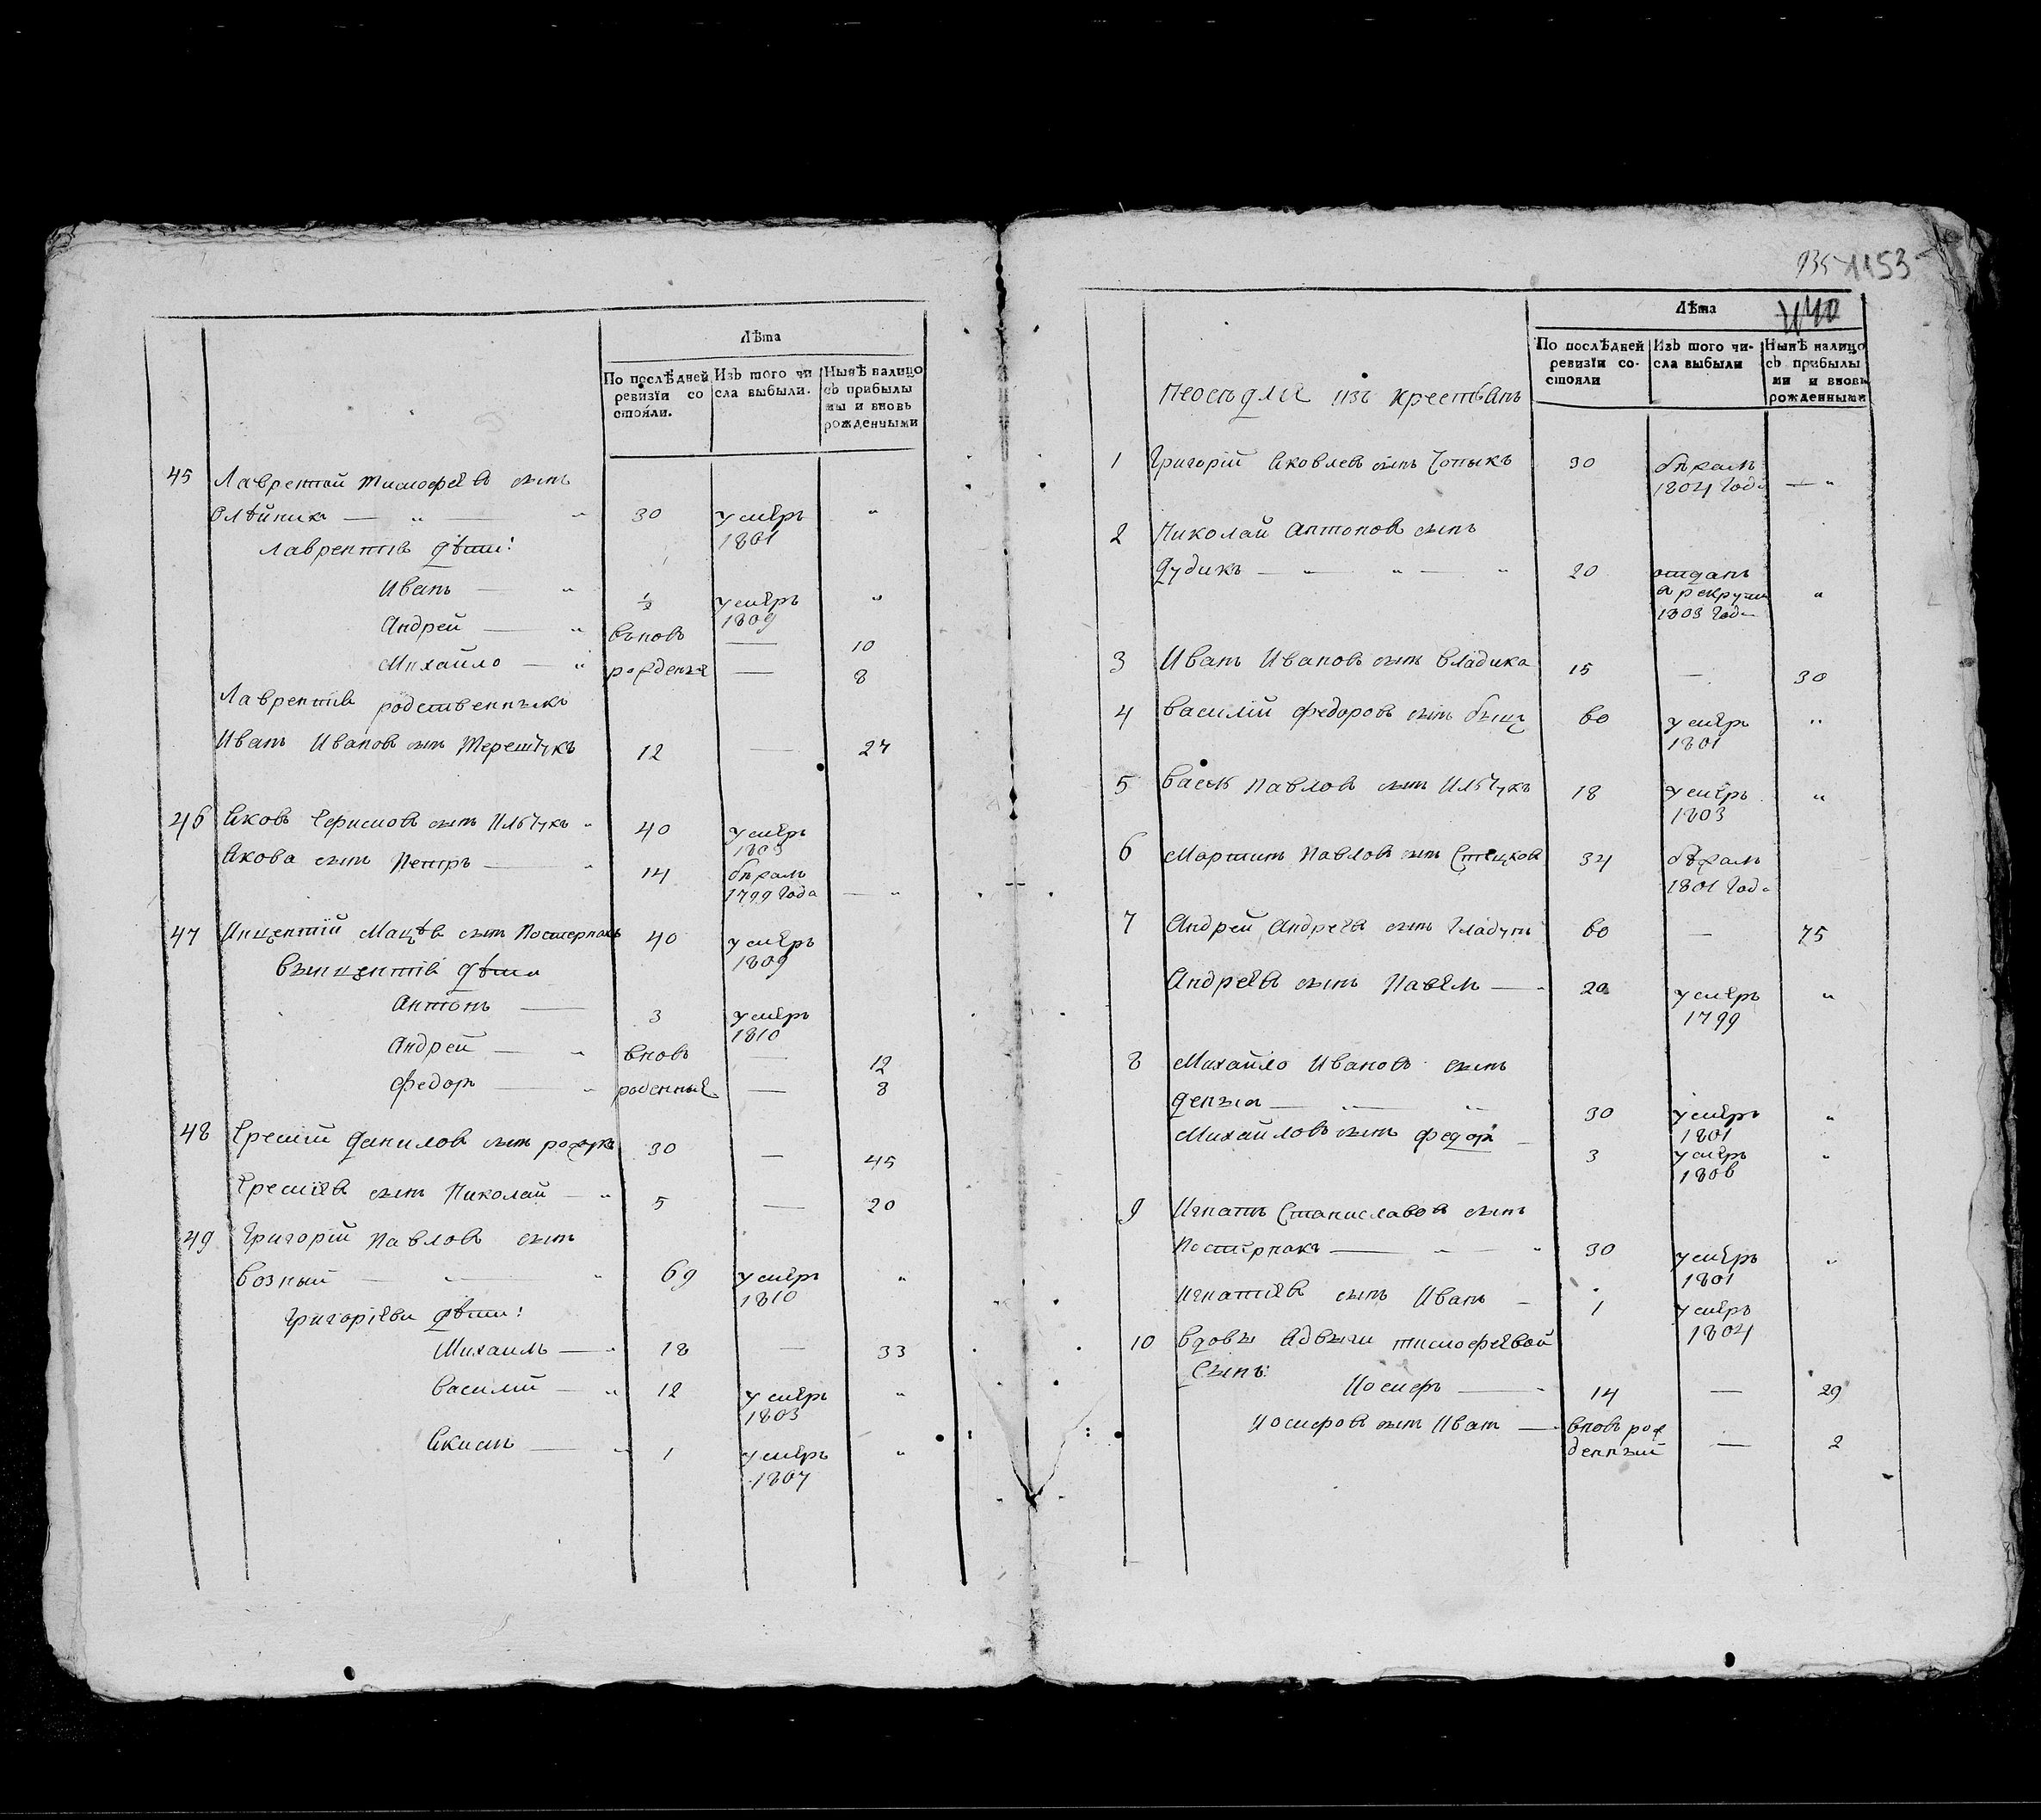 Лѣта
По послѣдней ревизїи со стояли.
Изъ того чи сла выбыли.
Нынѣ налицо съ прибылы ми и вновь рожденными
45 Лаврентий Тимофеевъ сынъ
Олѣйникъ — „ — „ 30 умеръ „
1801
Лаврентїя дѣти:
Иванъ — „ ½ умеръ „
1809
Андрей — „ вьновъ — 10
Михайло — „ рожденые — 8
Лаврентїя родственныкъ
Иванъ Ивановъ сынъ Терещукъ 12 — 27
46 Яковъ Ефимовъ сынъ Ильчукъ „ 40 умеръ
1803
Якова сынъ Петръ — „ 14 бѣжалъ
1799 года — „
47 Инцентїй Мацѣв сынъ Постернакъ 40 умеръ
1809
Вынцентїя дѣти
Антонъ — 3 умеръ
1810
Андрей — „ вновъ — 12
Федоръ — „ роденные — 8
48 Еремїй Данилов сынъ 30 — 45
Еремїев сынъ Николай — „ 5 — 20
49 Григорїй Павловъ сынъ
Возный — „ — „ 69 умеръ „
1810
Григорїеви дѣти:
Михаилъ — „ 18 — 33
Василий — „ 12 умеръ „
1803
Якимъ — „ 1 умеръ „
1807
935 1153
1140
Лѣта
По послѣдней ревизїи со- стояли
Изъ того чи- сла выбыли
Нынѣ налицо съ прибылы ми и вновь рожденными
изъ крестьянъ
1 Григорїй Яковлевъ сынъ 30 бѣжалъ
1804 года — „
2 Николай Антоновъ сынъ
Дудикъ — „ „ — „ 20 отданъ
в рекруты „
1803 года
3 Иванъ Ивановъ сынъ Владика 15 — 30
4 Василїй Федоровъ сынъ 60 умеръ „
1801
5 Павловъ сынъ Ильчукъ 18 умеръ „
1803
6 Мартинъ Павловъ сынъ 34 бѣжалъ
1801 года
7 Андрей Андреев сынъ Гладунъ 60 — 75
Андреевъ сынъ Павелъ — „ 20 умеръ „
1799
8 Михайло Ивановъ сынъ
— „ — „ 30 умеръ „
1801
Михайловъ сынъ Федоръ — 3 умеръ „
1806
9 Игнатъ Станиславовъ сынъ
Постернакъ — „ — „ 30 умеръ „
1801
Игнатїевъ сынъ Иванъ — 1 умеръ
1804
10 Вдовы Тимофеевой
Сынъ:
Иосифъ — „ 14 — 29
Иосифовъ сынъ Иванъ — вновъ рож
денный — 2